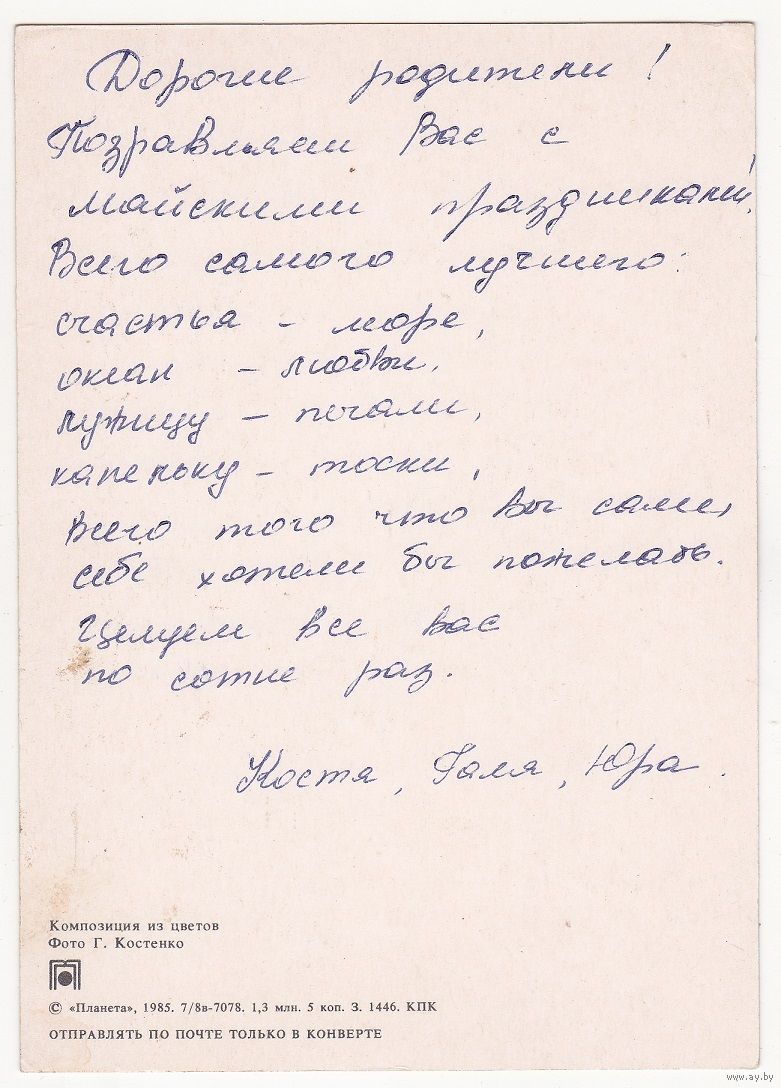 Дорогие родители!
Поздравляем Вас с
майскими праздниками!
Всего самого лучшего:
счастья - море,
океан - любви,
лужицу - печали,
капельку - тоски,
всего того что Вы сами,
себе хотели бы пожелать.
Целуем все вас
по сотне раз.
Костя, Галя, Юра.
Композиция из цветов
Фото Г. Костенко
© «Планета», 1985. 7/8в-7078. 1,3 млн. 5 коп. З. 1446. КПК
ОТПРАВЛЯТЬ ПО ПОЧТЕ ТОЛЬКО В КОНВЕРТЕ
www.ay.by